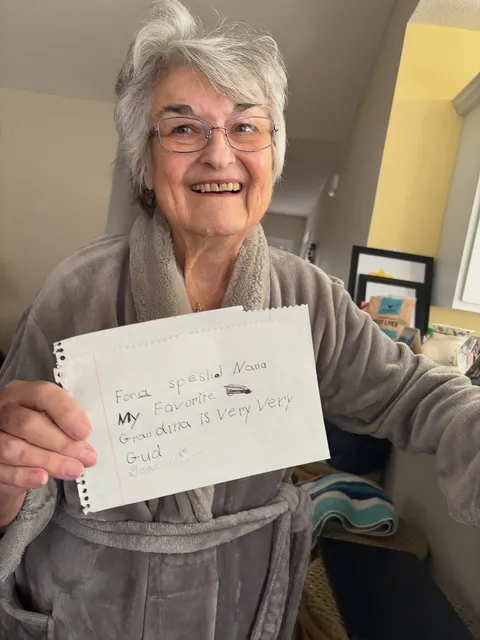 For a speshal Nana
My Favorite
Grandma is very very
Gud